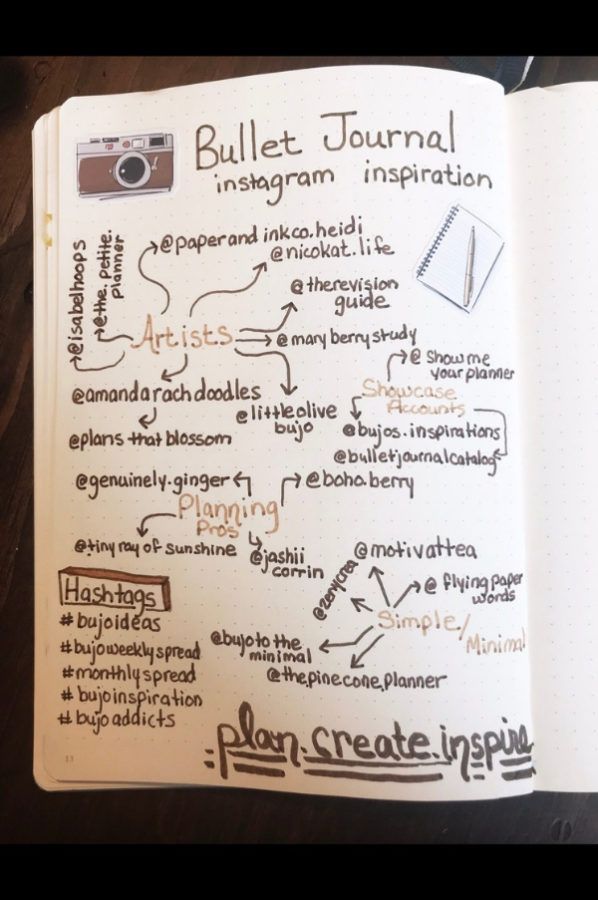 Bullet Journal
instagram inspiration
@isabelhoops
@the.petite.
planner
@paperand inkco.heidi
@nicokat.life
@therevision
guide
Artists
@maryberrystudy
@amandarachdoodles
@plans that blossom
@littleolive
bujo
@ Show me
your planner
Showcase
Accounts
@bujos.inspirations
@bulletjournalcatalog
@genuinely.ginger
@boho.berry
Planning
Pros
@tiny ray of sunshine
@jashii
corrin
@motivattea
@ flying paper
words
Simple/
Minimal
@bujo to the
minimal
@the.pinecone.planner
Hashtags
# bujoideas
#bujoweeklyspread
#monthlyspread
# bujoinspiration
# bujoaddicts
plan.create.inspire